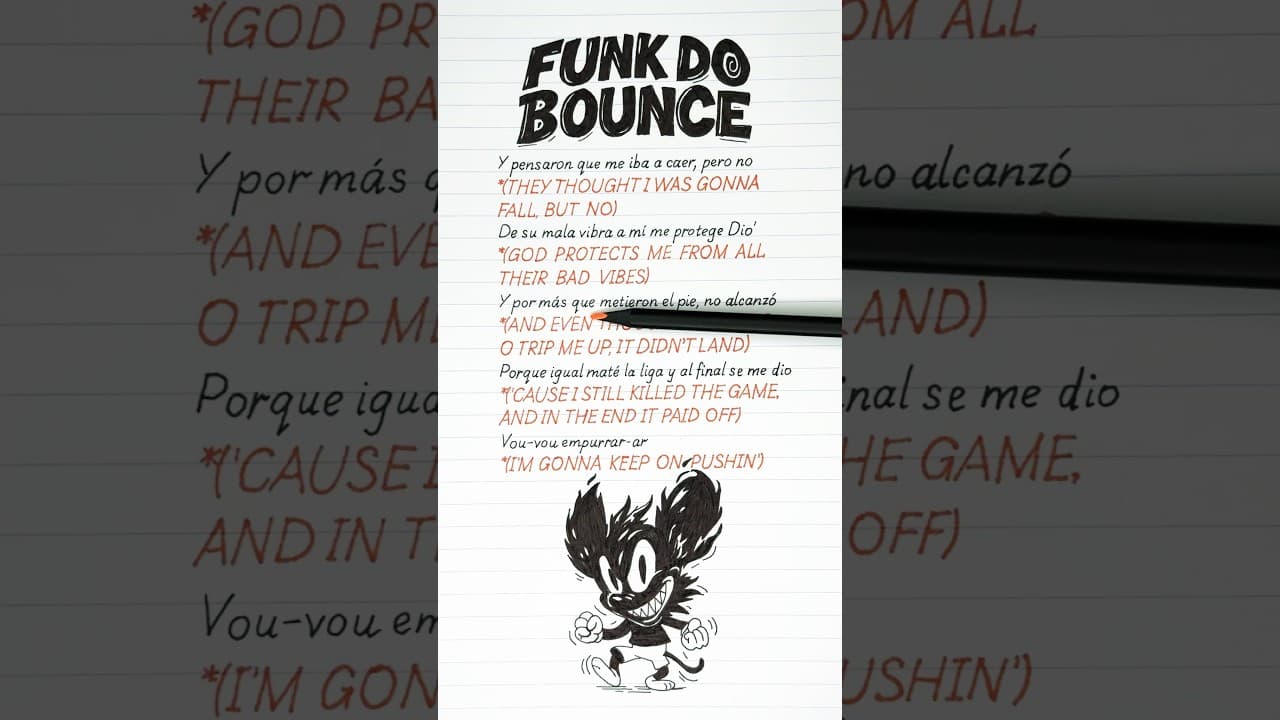 FUNK DO
BOUNCE
Y pensaron que me iba a caer, pero no
*(THEY THOUGHT I WAS GONNA
FALL, BUT NO)
De su mala vibra a mí me protege Dio'
*(GOD PROTECTS ME FROM ALL
THEIR BAD VIBES)
Y por más que metieron el pie, no alcanzó
*(AND EVEN
O TRIP ME UP, IT DIDN'T LAND)
Porque igual maté la liga y al final se me dio
*('CAUSE I STILL KILLED THE GAME,
AND IN THE END IT PAID OFF)
Vou-vou empurrar-ar
*(I'M GONNA KEEP ON PUSHIN')